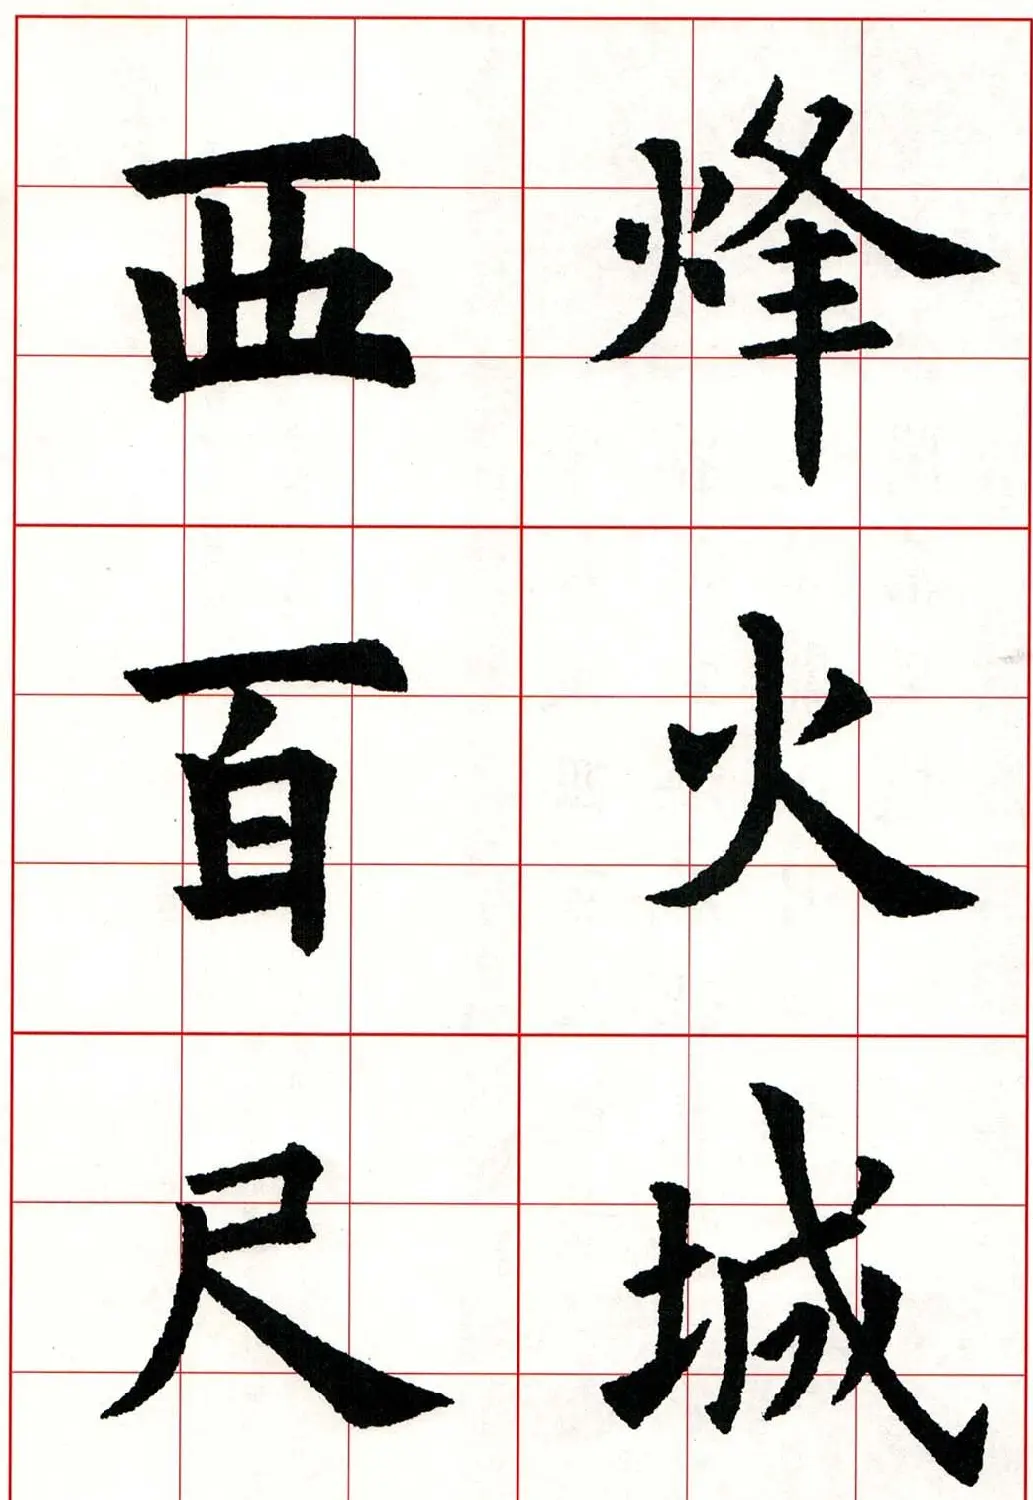 烽火城
西百尺